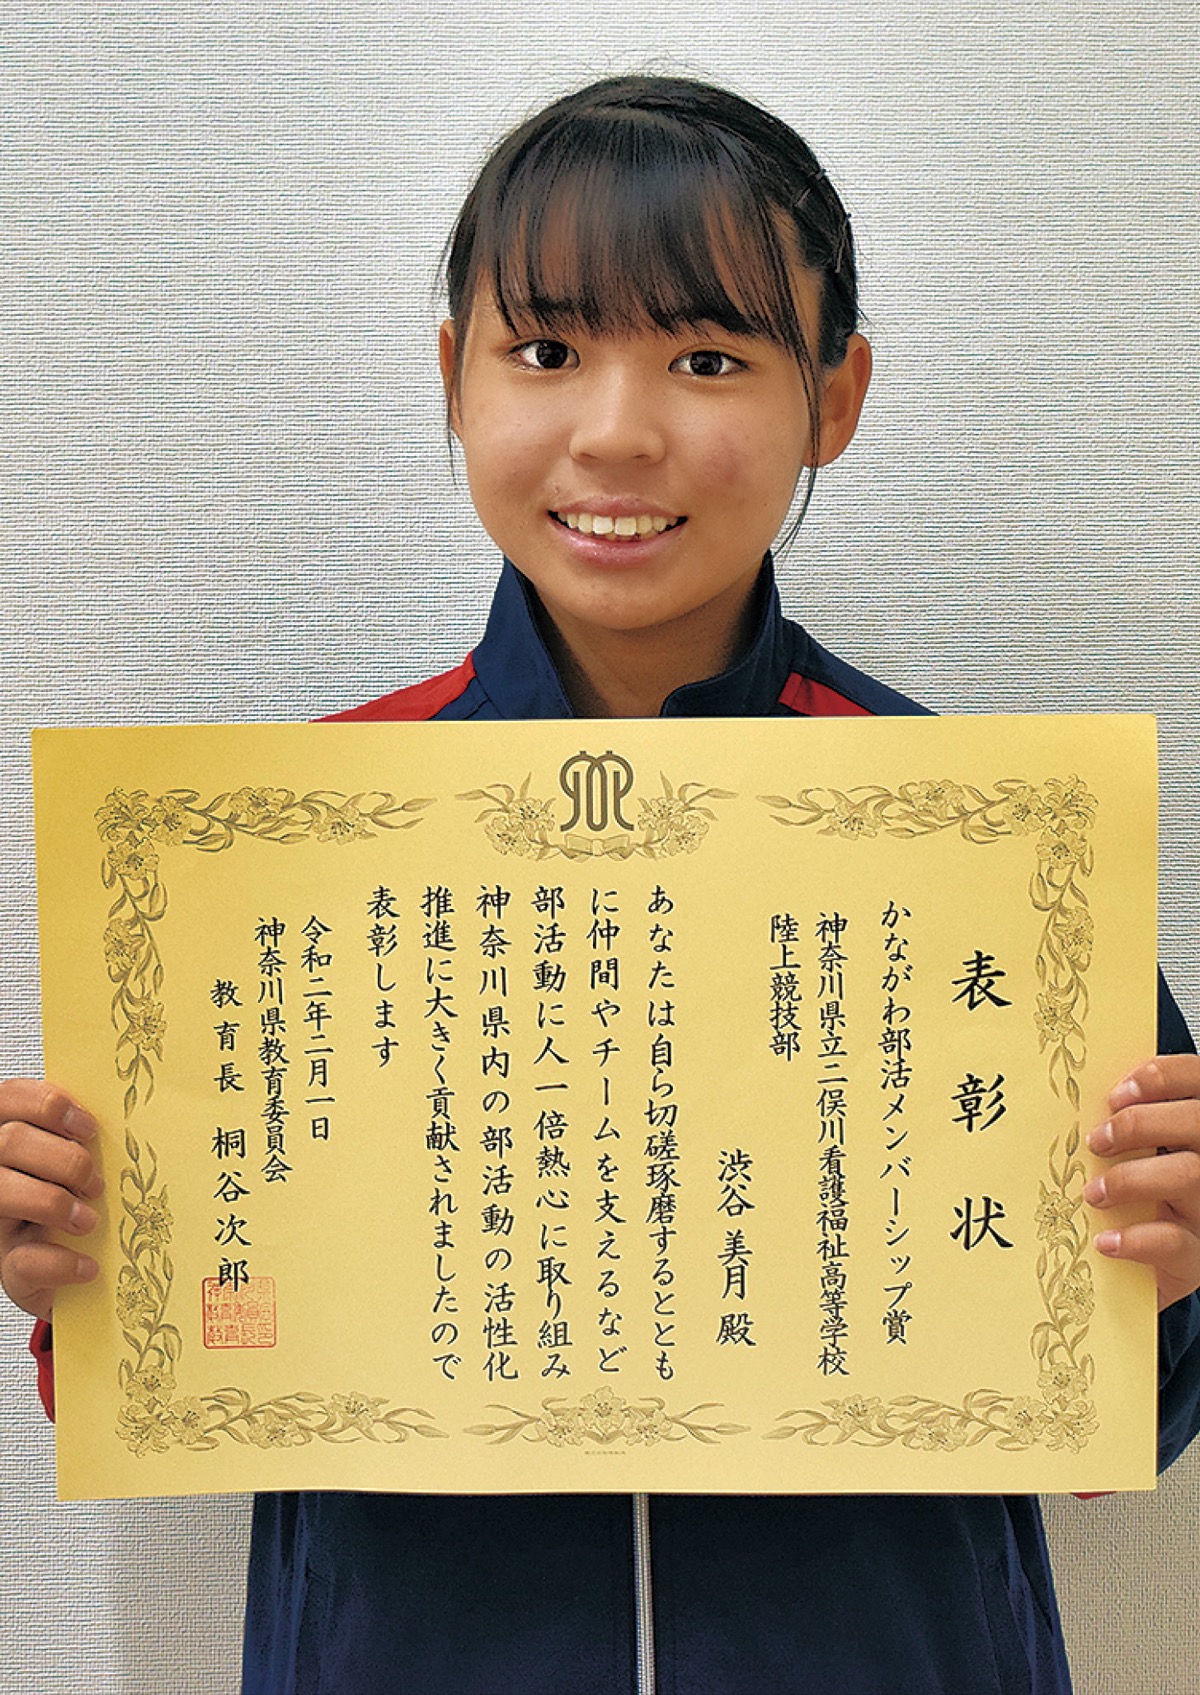 表彰状
かながわ部活メンバーシップ賞
神奈川県立二俣川看護福祉高等学校
陸上競技部
渋谷美月殿
あなたは自ら切磋琢磨するととも
に仲間やチームを支えるなど
部活動に人一倍熱心に取り組み
神奈川県内の部活動の活性化
推進に大きく貢献されましたので
表彰します
令和二年二月一日
神奈川県教育委員会
教育長 桐谷次郎